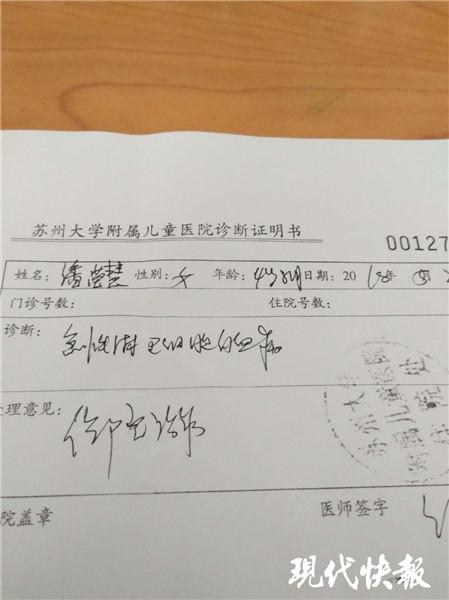 苏州大学附属儿童医院诊断证明书
00127
姓名: 潘莹慧 性别: 女 年龄: 日期: 20 18年
门诊号数: 住院号数:
诊断: 急性淋巴细胞白血病
理意见: 住院治疗
苏州大学
附属儿童医院
住院处
院盖章 医师签字
现代快报